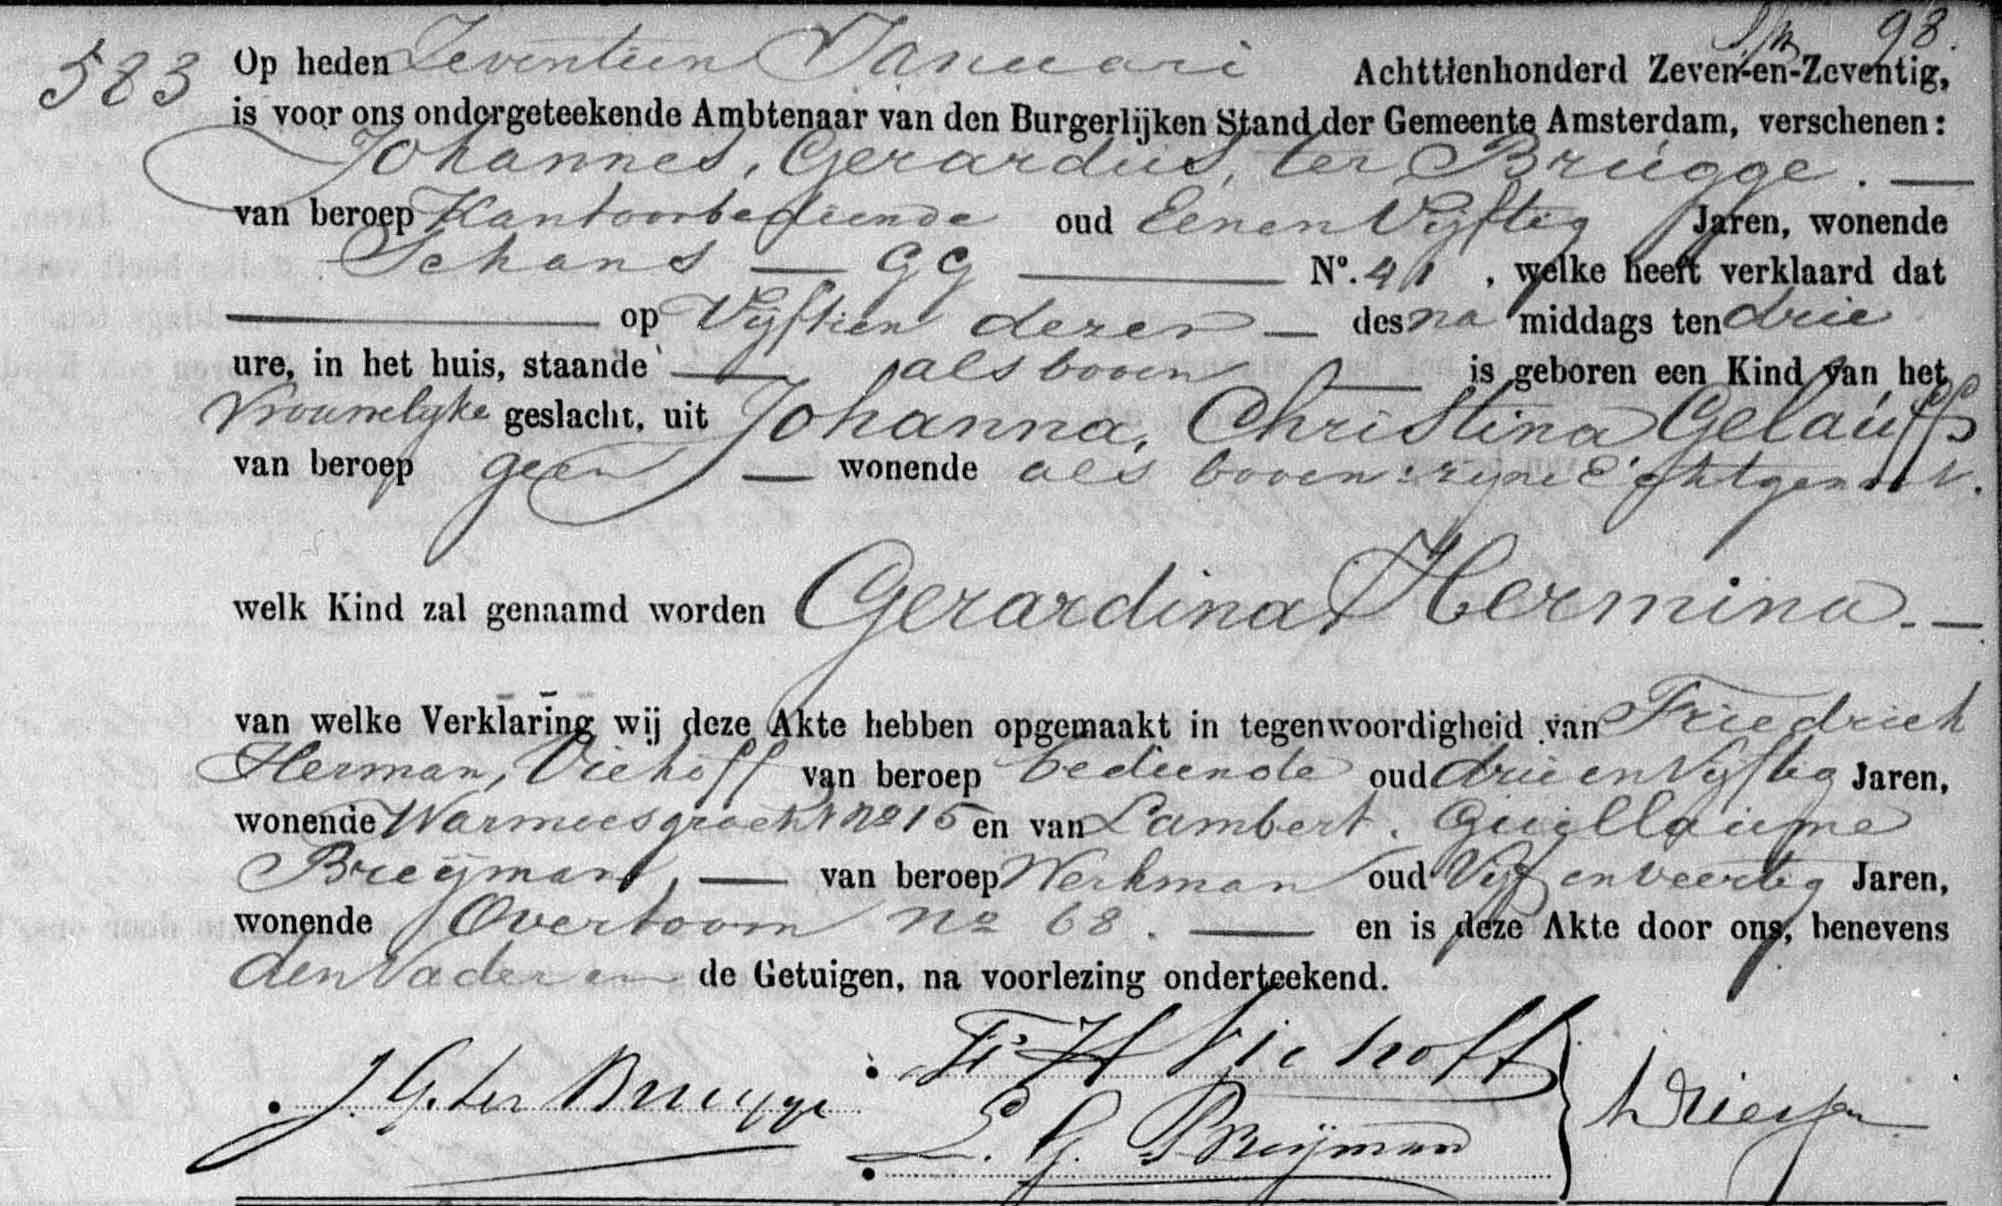 98.
583 Op heden Zeventien Januari Achttienhonderd Zeven-en-Zeventig,
is voor ons ondergeteekende Ambtenaar van den Burgerlijken Stand der Gemeente Amsterdam, verschenen:
Johannes, Gerardus, ter Brugge. —
van beroep Kantoorbediende oud Eenen Vijftig Jaren, wonende
Schans — GG — No. 41, welke heeft verklaard dat
— op Vijftien dezer — des na middags ten drie
ure, in het huis, staande — als boven — is geboren een Kind van het
Vrouwelijke geslacht, uit Johanna, Christina Gelauff
van beroep geen — wonende als boven: zijne Echtgenoot.
welk Kind zal genaamd worden Gerardina Hermina. —
van welke Verklaring wij deze Akte hebben opgemaakt in tegenwoordigheid van Friedrich
Herman, Viehoff van beroep bediende oud drie en Vijftig Jaren,
wonende Warmoesgracht no 15 en van Lambert, Guillaume
Breijman, — van beroep Werkman oud Vijf en veertig Jaren,
wonende Overtoom no 68. — en is deze Akte door ons, benevens
den Vader en de Getuigen, na voorlezing onderteekend.
J. G. ter Brugge Fr. H Viehoff
L. G. Breijman